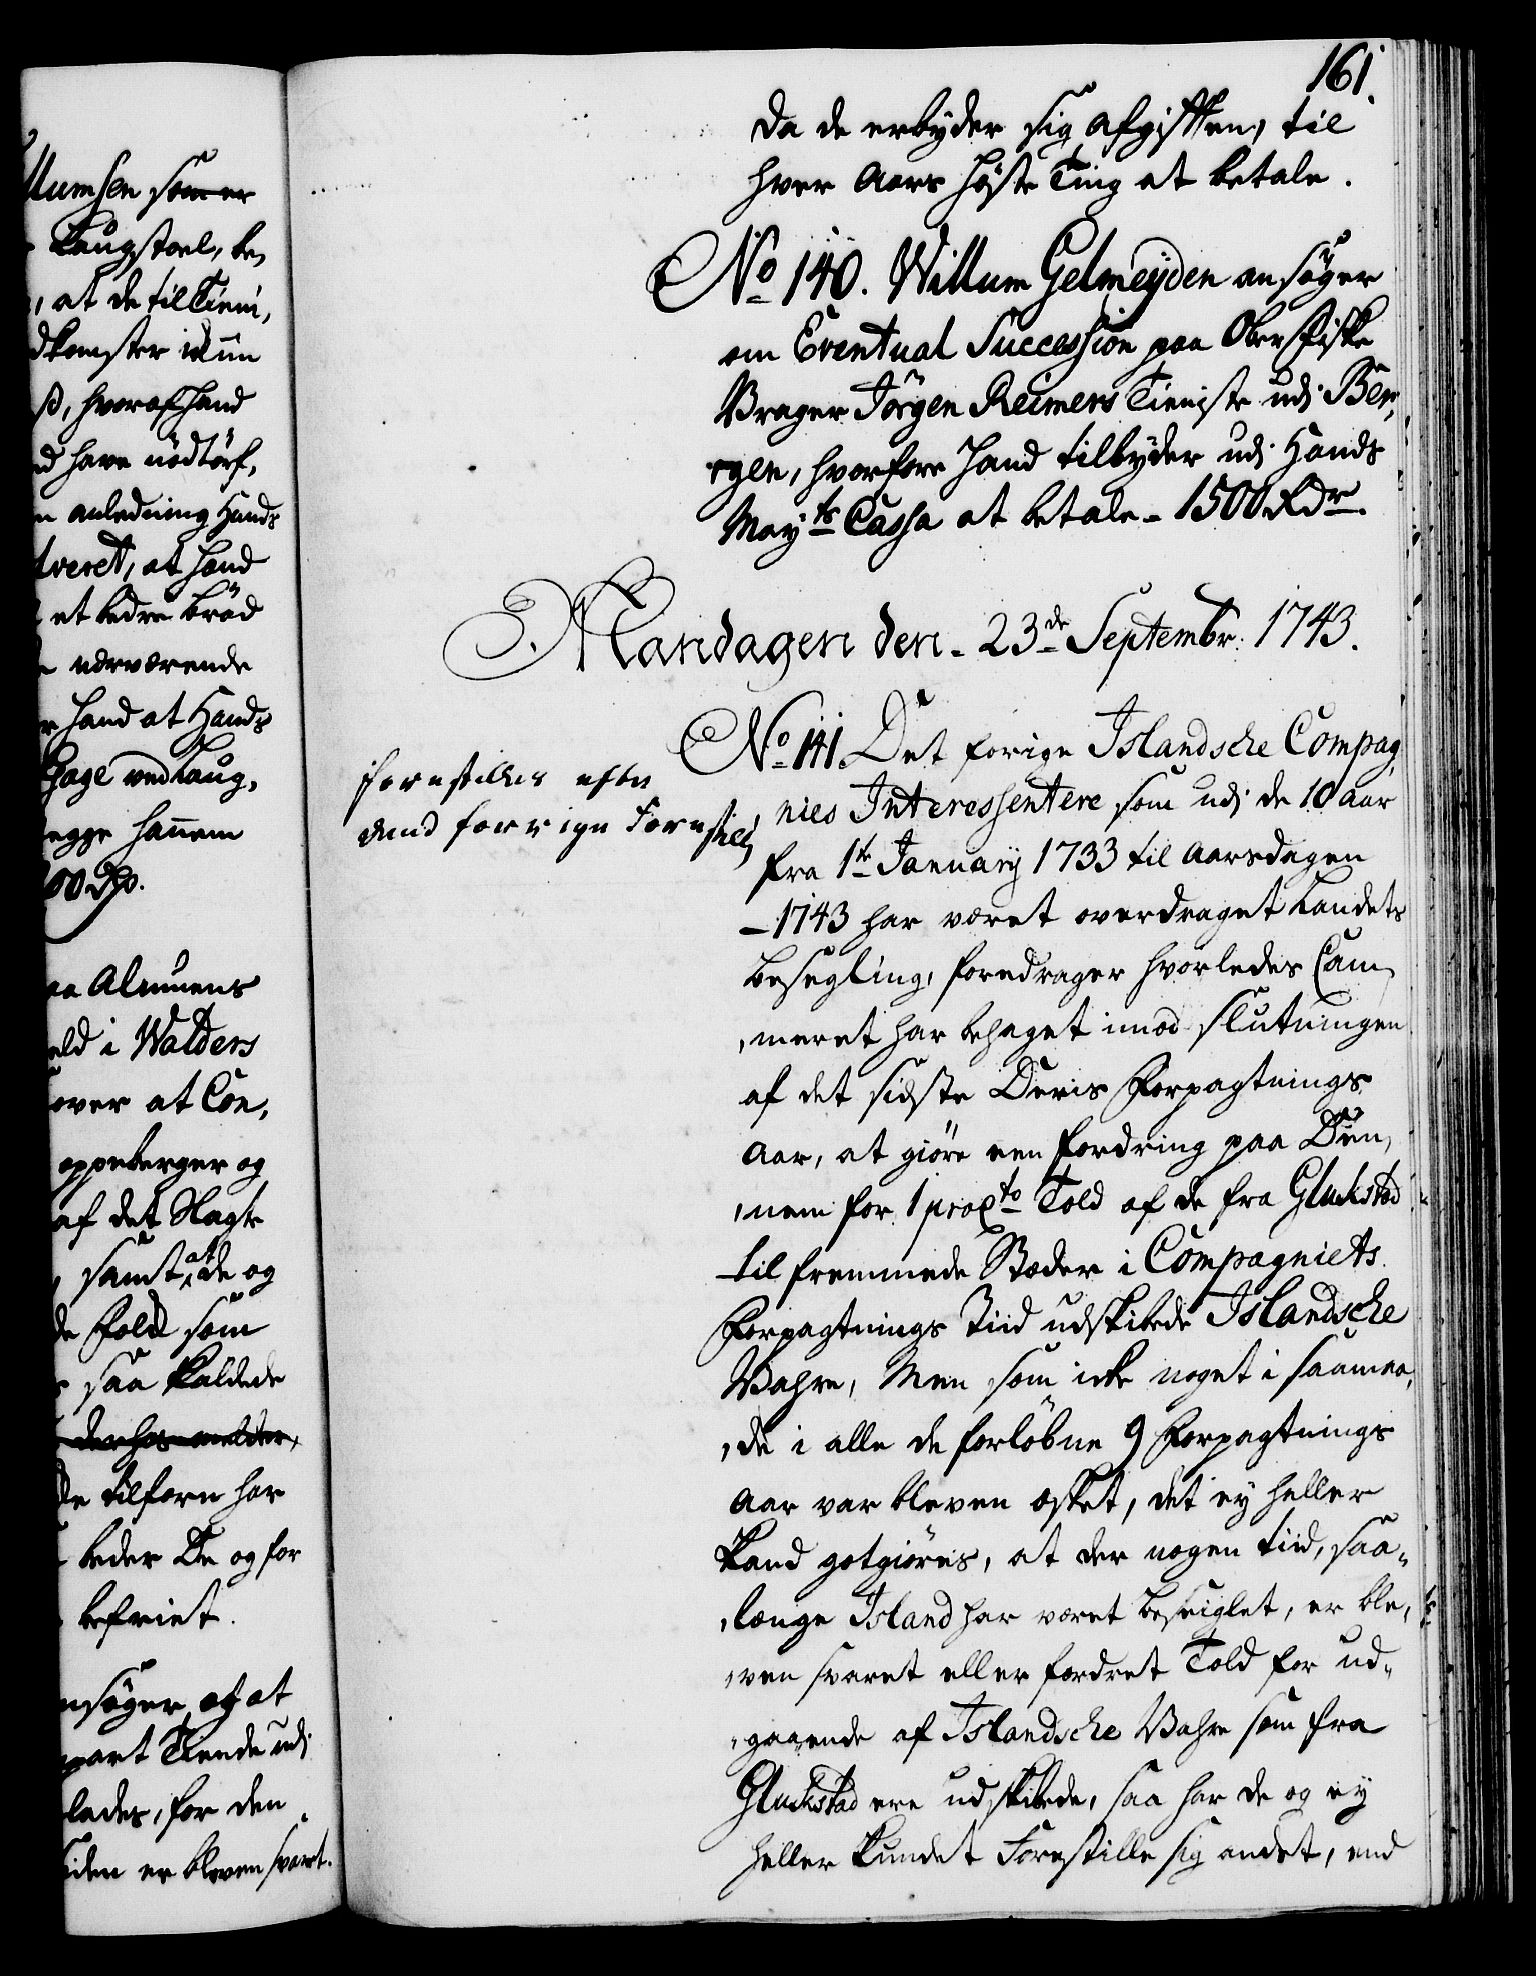 161.
da de erbyder sig afgiften, til
hver Aars Høste Ting at betale.
No 140. Willum Gelmeyden ansøger
om Eventual Succession paa Ober Fiske
Vrager Jörgen Reimers Tieniste udj Ber,
rgen, hvorfore Hand tilbyder udj Hands
Mayts Cassa at betale - 1500 Rdr.
Mandagen den - 23de Septembr: 1743.
No 141 Det forige Islandsche Compag,
nies Interessentere som udj de 10 aar
fra 1te January 1733 til Aarsdagen
- 1743 har været overdraget Landets
Besegling, foredrager hvorledes Cam,
,meret har behaget imod slutningen
af det sidste Deris Forpagtnings
Aar, at giöre een fordring paa Den,
,nem for 1 procto Told af de fra Gluckstad
til fremmede Stæder i Compagniets
Forpagtnings Tiid udskibede Islandsche
Vahre, Men som icke noget i saamaa,
,de i alle de forløbne 9 Forpagtnings
Aar var bleven æsket, det ey heller
kand gotgiöres, at der nogen tiid, saa-
,længe Island har været beseiglet, er ble,
,ven svaret eller fordret Told for ud-
,gaaende af Islandsche Vahre som fra
Gluckstad ere udskibede, saa har de og ey
heller kundet Forestille sig andet, end
forestilles efter
dend forrige Forestill,
lumsen som er
Laugstoel, be,
, at de til Tieni,
dkomster i
hvoraf Hand
d have nödtörf,
n anledning Hands
tveret, at Hand
et bedre bröd
nærværende
r Hand at Hands
Gage ved Laug,
egge hannem
00 Rd.
aa Almuens
eld i Walders
over at Con,
oppeberger og
af det Slags
, samt at de og
de Told som
saa kaldede
derhos melder,
de tilforn har
beder De og for
befriet.
nsøger at
part Tiende udj
lades, for den
siden er bleven svart.